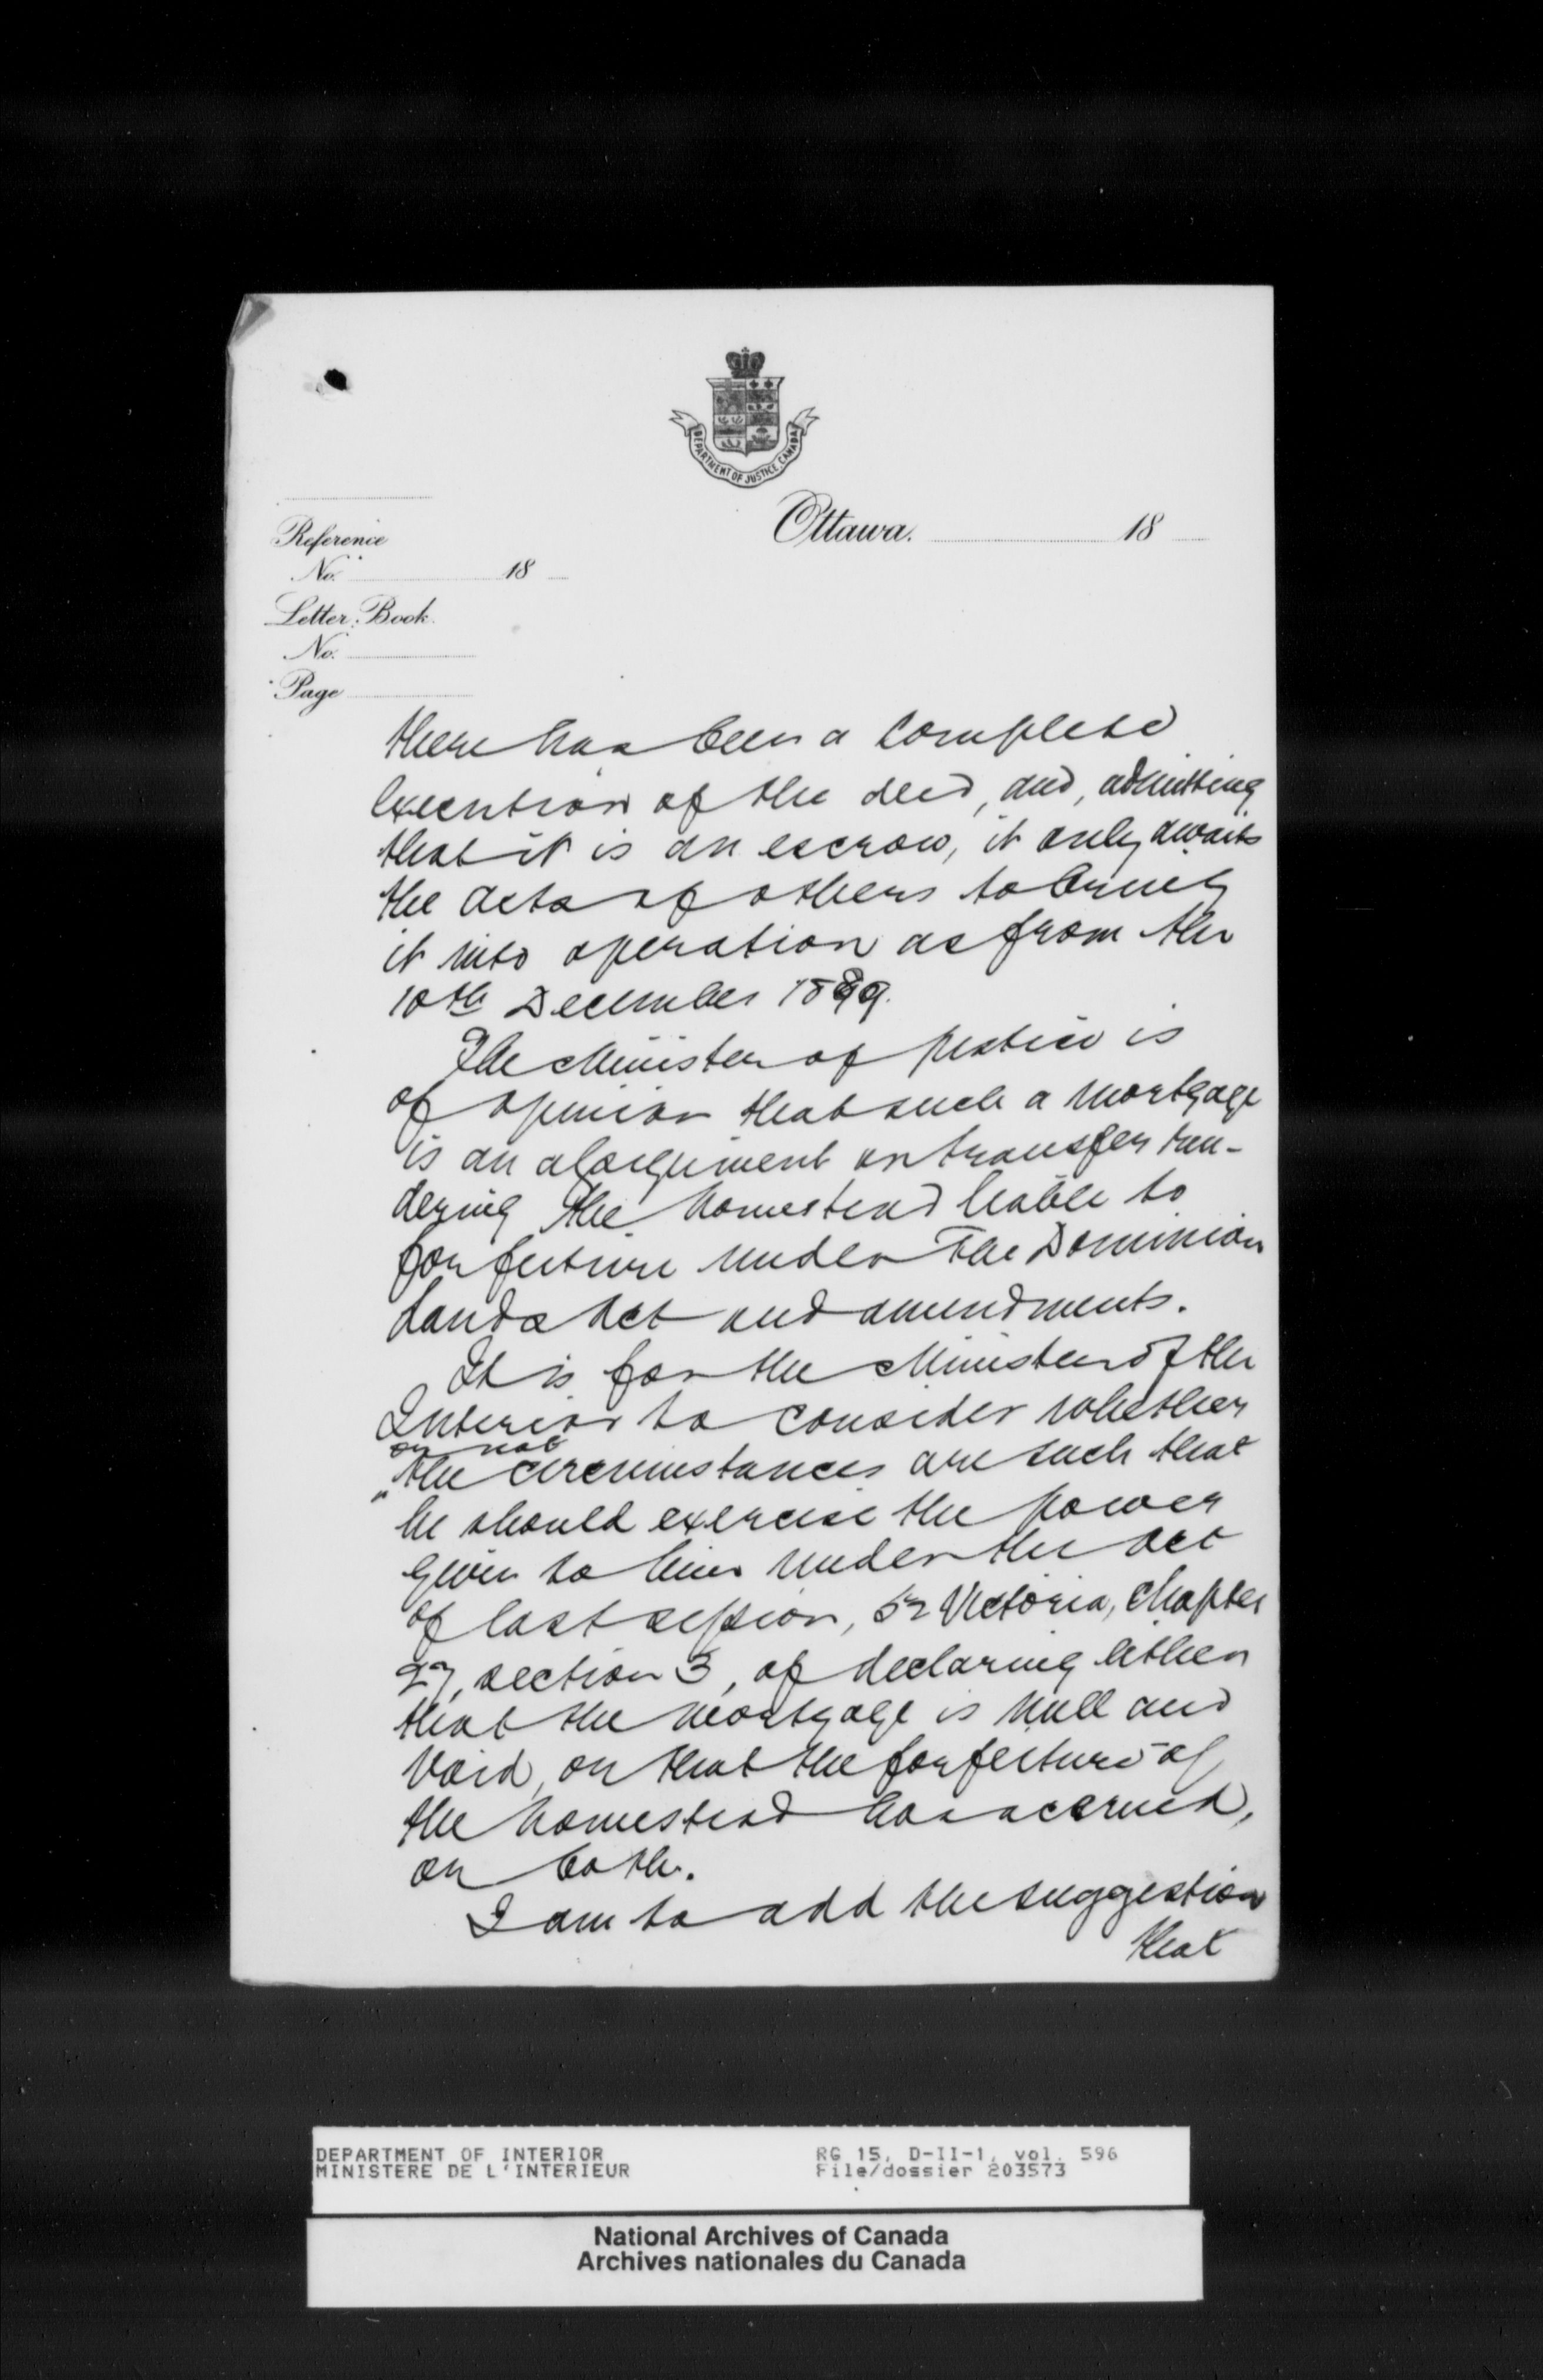 DEPARTMENT OF JUSTICE, CANADA
Ottawa. 18
Reference
No. 18
Letter Book.
No.
Page
there has been a complete
execution of the deed, and, admitting
that it is an escrow, it only awaits
the acts of others to bring
it into operation as from the
10th December 1889.
The Minister of Justice is
of opinion that such a mortgage
is an assignment or transfer ren-
dering the homestead liable to
forfeiture under The Dominion
Lands Act and amendments.
It is for the Minister of the
Interior to consider whether
or not
"the circumstances are such that
he should exercise the power
given to him under the Act
of last session, 52 Victoria, Chapter
27, section 3, of declaring either
that the mortgage is null and
void, or that the forfeiture of
the homestead has accrued,
or both.
I am to add the suggestion
that
DEPARTMENT OF INTERIOR
MINISTERE DE L'INTERIEUR
RG 15, D-II-1, vol. 596
File/dossier 203573
National Archives of Canada
Archives nationales du Canada